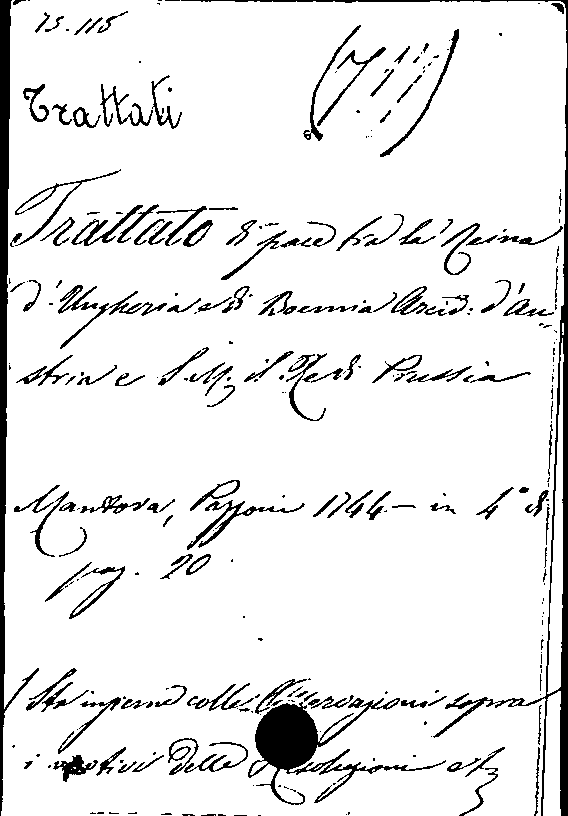 75.115
(711)
Trattati
Trattato di pace tra la Reina
d'Ungheria e di Boemia Arcid: d'Au-
stria e S. M. il Re di Prussia
Mantova, Pazzoni 1744 — in 4° di
pag. 20
/ Sta insieme colle Osservazioni sopra
i motivi delle Risoluzioni etz